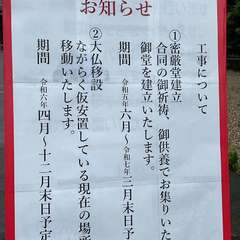 お知らせ
工事について
①密厳堂建立
合同の御祈祷、御供養でお集りいた
御堂を建立いたします。
期間 令和五年六月～令和七年三月末日予定
②大仏移設
ながらく仮安置している現在の場所
移動いたします。
期間 令和六年四月～十二月末日予定